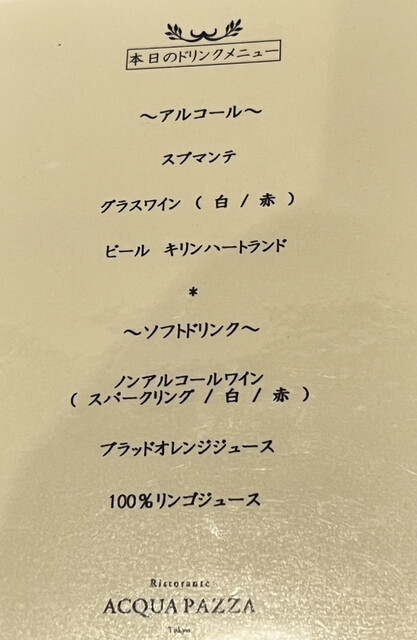 本日のドリンクメニュー
～アルコール～
スプマンテ
グラスワイン ( 白 / 赤 )
ビール キリンハートランド
*
～ソフトドリンク～
ノンアルコールワイン
( スパークリング / 白 / 赤 )
ブラッドオレンジジュース
100%リンゴジュース
Ristorante
ACQUA PAZZA
Tokyo